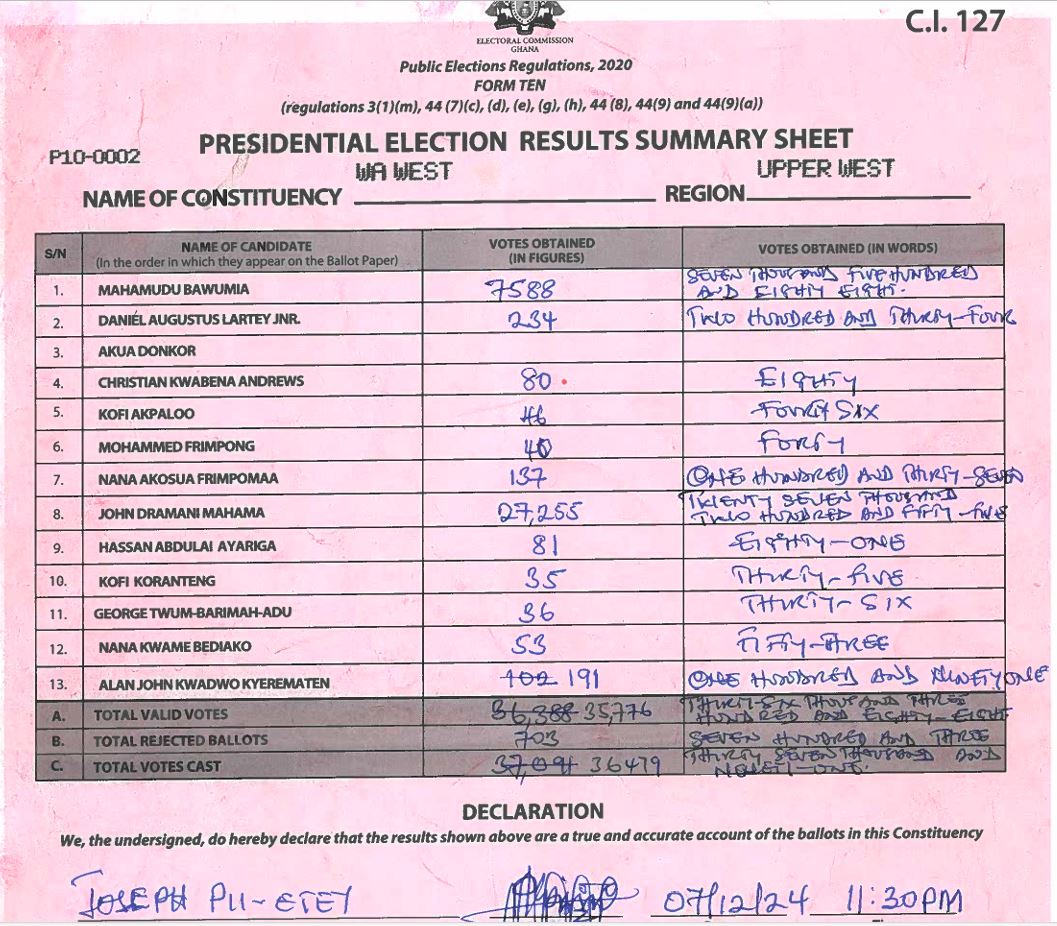 C.I. 127
ELECTORAL COMMISSION
GHANA
Public Elections Regulations, 2020
FORM TEN
(regulations 3(1)(m), 44 (7)(c), (d), (e), (g), (h), 44 (8), 44(9) and 44(9)(a))
PRESIDENTIAL ELECTION RESULTS SUMMARY SHEET
P10-0002
NAME OF CONSTITUENCY WA WEST REGION UPPER WEST
S/N NAME OF CANDIDATE (In the order in which they appear on the Ballot Paper) VOTES OBTAINED (IN FIGURES) VOTES OBTAINED (IN WORDS)
1. MAHAMUDU BAWUMIA 7588 SEVEN THOUSAND FIVE HUNDRED
AND EIGHTY EIGHT.
2. DANIEL AUGUSTUS LARTEY JNR. 234 TWO HUNDRED AND THIRTY-FOUR
3. AKUA DONKOR
4. CHRISTIAN KWABENA ANDREWS 80 EIGHTY
5. KOFI AKPALOO 46 FOURTY SIX
6. MOHAMMED FRIMPONG 40 FORTY
7. NANA AKOSUA FRIMPOMAA 137 ONE HUNDRED AND THIRTY-SEVEN
8. JOHN DRAMANI MAHAMA 27,255 TWENTY SEVEN THOUSAND
TWO HUNDRED AND FIFTY-FIVE
9. HASSAN ABDULAI AYARIGA 81 EIGHTY-ONE
10. KOFI KORANTENG 35 THIRTY-FIVE
11. GEORGE TWUM-BARIMAH-ADU 36 THIRTY-SIX
12. NANA KWAME BEDIAKO 53 FIFTY-THREE
13. ALAN JOHN KWADWO KYEREMATEN 102 191 ONE HUNDRED AND NINETY ONE
A. TOTAL VALID VOTES 36,388 35,776 THIRTY-SIX THOUSAND THREE
HUNDRED AND EIGHTY-EIGHT
B. TOTAL REJECTED BALLOTS 703 SEVEN HUNDRED AND THREE
C. TOTAL VOTES CAST 37,091 36479 THIRTY SEVEN THOUSAND AND
NINETY-ONE.
DECLARATION
We, the undersigned, do hereby declare that the results shown above are a true and accurate account of the ballots in this Constituency
JOSEPH 07/12/24 11:30PM